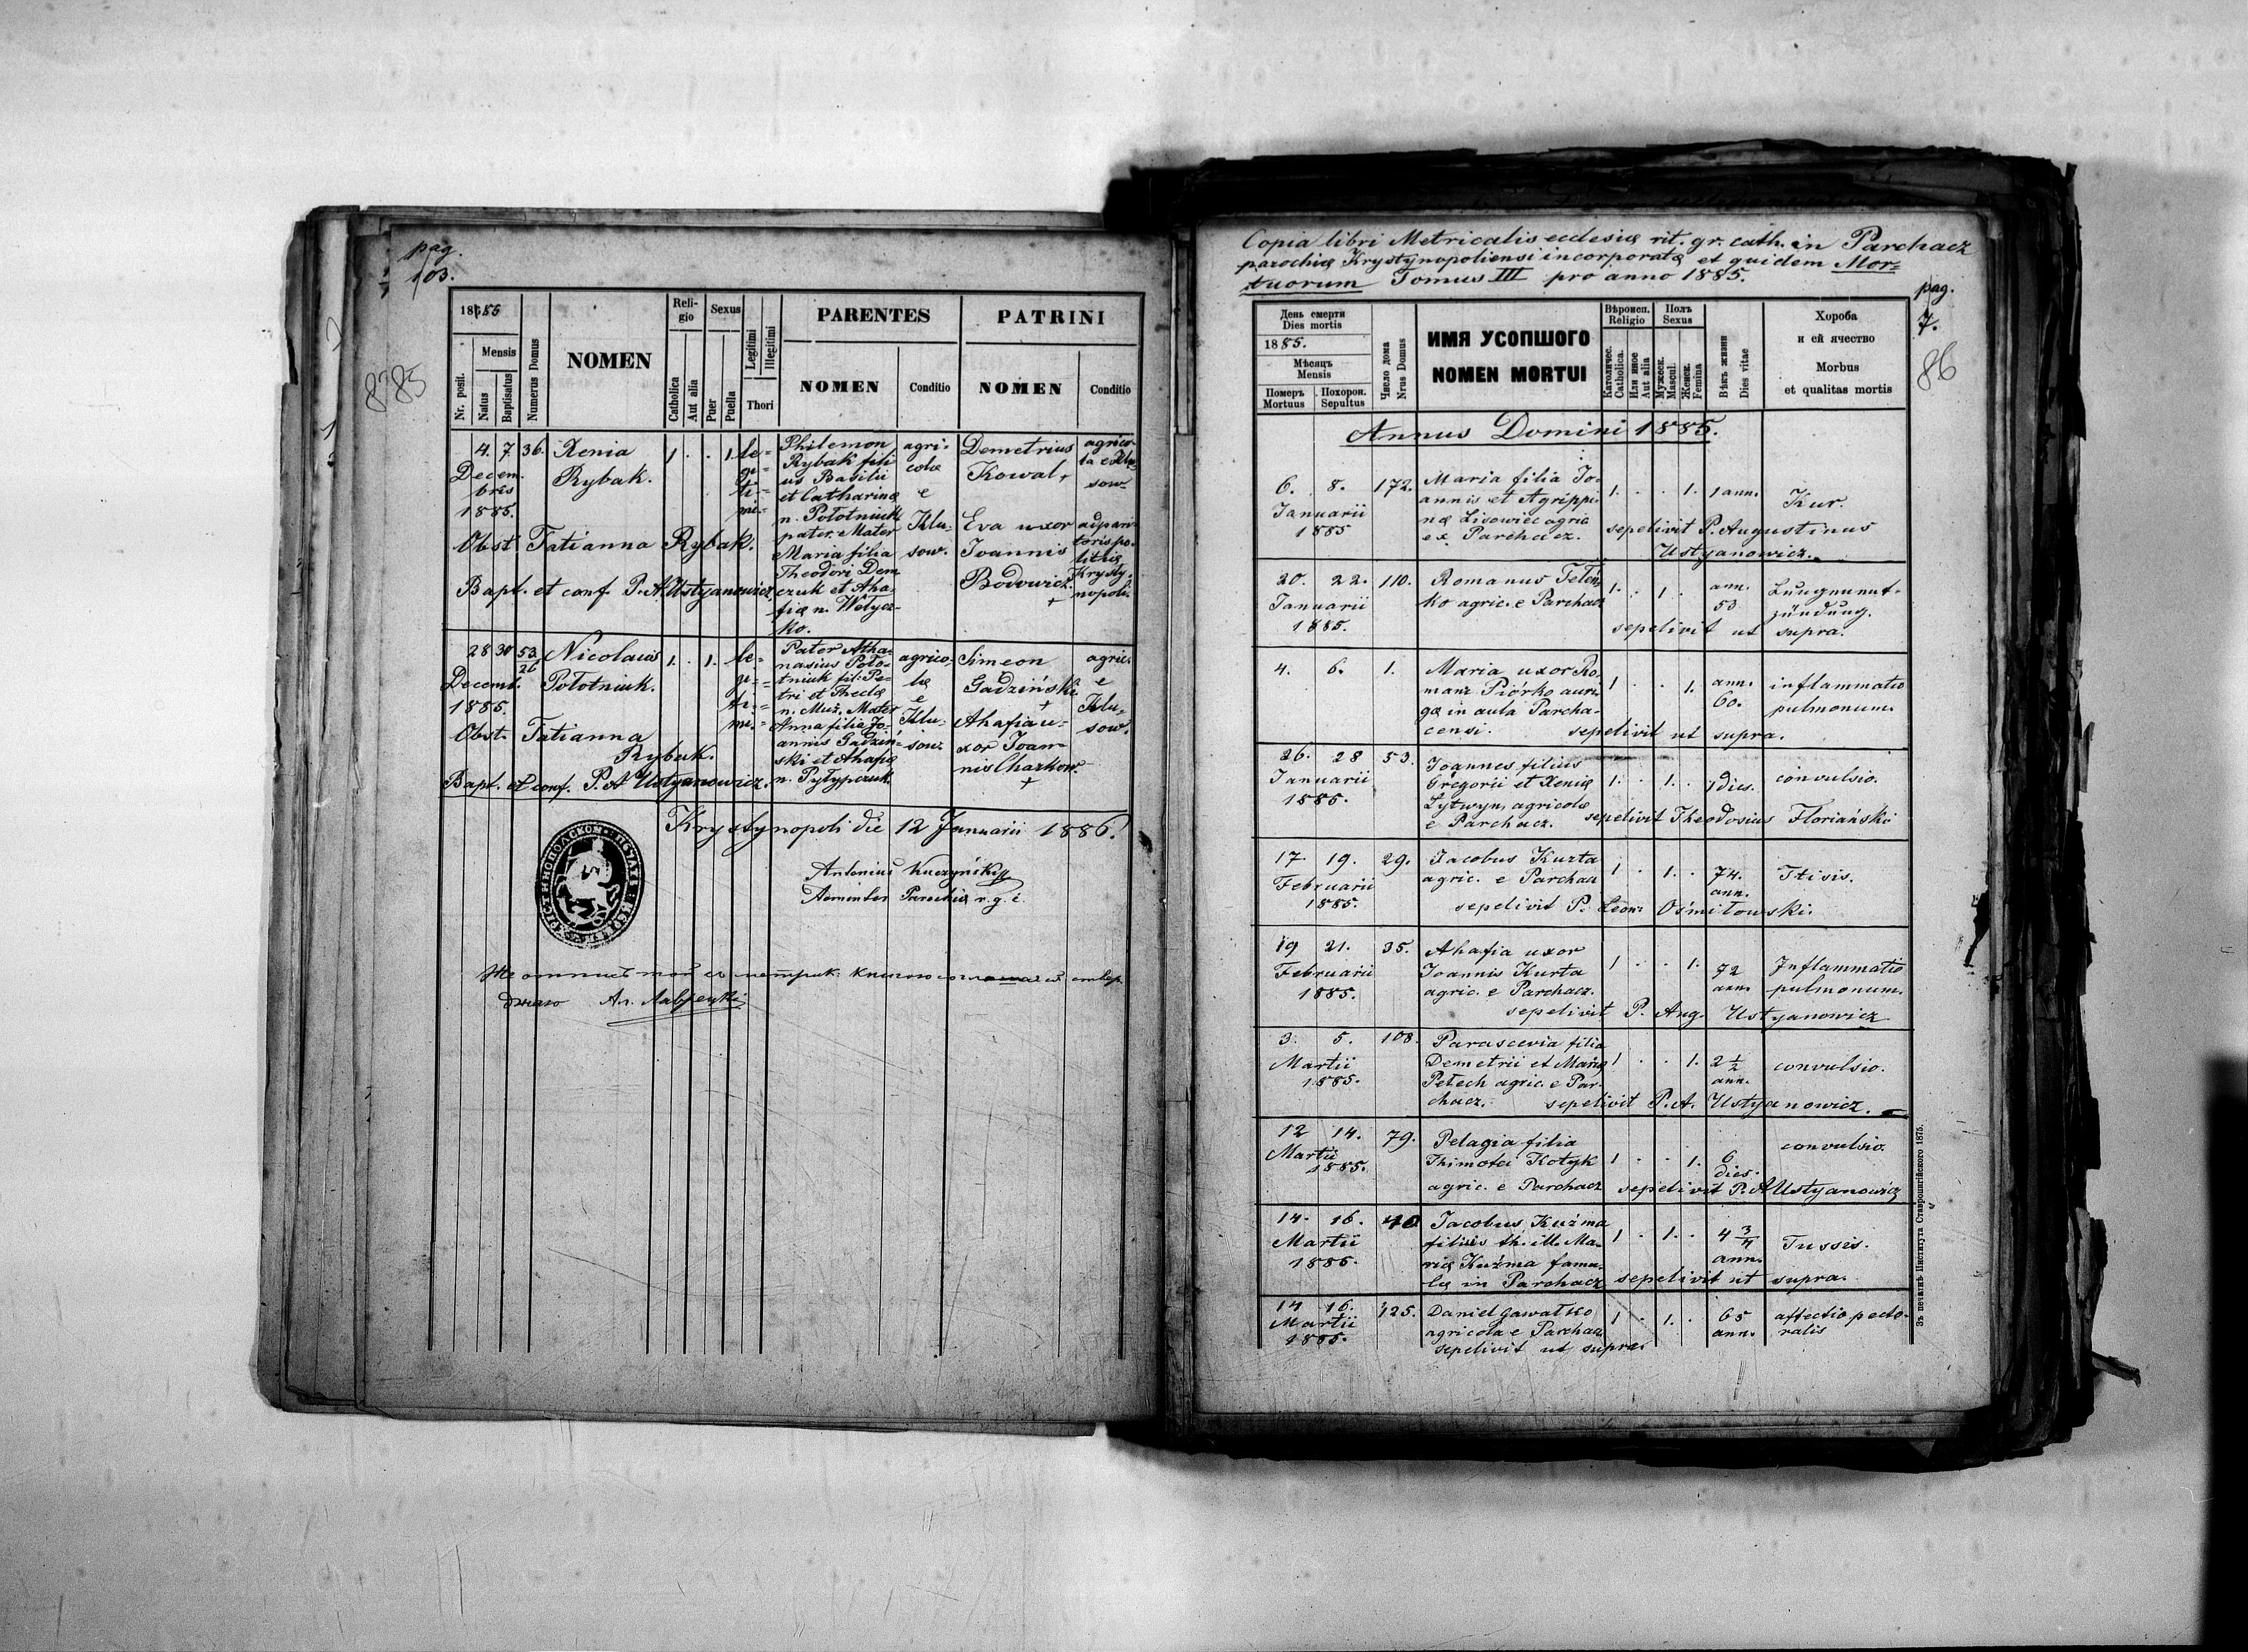 pag.
103.
8285
1885
Nr. posit.
Mensis
Natus
Baptisatus
Numerus Domus
NOMEN
Religio
Catholica
Aut alia
Sexus
Puer
Puella
Legitimi
Illegitimi
Thori
PARENTES
NOMEN
Conditio
PATRINI
NOMEN
Conditio
4. 7. 36. Xenia
Rybak.
Decem
bris
1885.
1 . . 1. le=
gi=
ti=
mi=
Philemon
Rybak fili
us Basilii
et Catharinæ
n. Połotniuk
pater. Mater
Maria filia
Theodori Dem
czuk et Aha-
fiæ n. Wełycz-
ko.
agri-
colæ
e
Klu-
sow.
Demetrius
Kowal +
Eva uxor
Joannis
Bodowicz.
+
agrico-
la e Klu-
sow
adpari-
toris po-
litiæ
Krysty-
nopoli.
Obst Tatianna Rybak.
Bapt. et conf. P. A. Ustyanowicz.
28 30 53. Nicolaus
26
Połotniuk.
Decemb.
1885.
1. . 1. le=
gi=
ti=
mi=
Pater Atha-
nasius Poło-
tniuk fil: Pe-
tri et Theclæ
n. Muż. Mater
Anna filia Jo-
annis Gadziń-
ski et Ahafiæ
n. Pyłypczuk
agrico-
læ
e
Klu-
sow.
Simeon
Gadziński
+
Ahafia u-
xor Joan-
nis Charkow.
+
agric.
e
Klu-
sow.
Obst. Tatianna
Rybak.
Bapt. et conf. P. A Ustyanowicz.
Krystynopoli die 12 Januarii 1886.
Antonius Kuczyński
Adminter Parochiæ r. g. c.
Ал. Лаврецкій
Copia libri Metricalis ecclesiæ rit. gr. cath. in Parchacz
parochiæ Krystynopoliensi incorporatæ et quidem Mor=
tuorum Tomus III pro anno 1885.
pag.
7.
86
День смерти
Dies mortis
1885.
Мѣсяцъ
Mensis
Померъ
Mortuus
Похорон.
Sepultus
Число дома
Nrus Domus
ИМЯ УСОПШОГО
NOMEN MORTUI
Вѣроисп.
Religio
Католичес.
Catholica.
Или иное
Aut alia
Полъ
Sexus
Мужеск.
Mascul.
Женск.
Femina
Вѣкъ жизни
Dies vitae
Хороба
и ей ячество
Morbus
et qualitas mortis
Annus Domini 1885.
6. 8. 172.
Januarii
1885
Maria filia Jo-
annis et Agrippi-
næ Lisowiec agric
ex Parchacz.
1. . . 1. 1 ann. Kur.
sepelivit P. Augustinus
Ustyanowicz.
20. 22. 110.
Januarii
1885.
Romanus Teteń-
ko agric. e Parchacz
1. . 1 . ann.
53
Lungenent-
zündung.
sepelivit ut supra.
4. 6. 1.
Maria uxor Ro-
mani Piórko auri-
gæ in aula Parcha-
censi.
1 . . 1. ann.
60.
inflammatio
pulmonum.
sepelivit ut supra.
26. 28 53.
Januarii
1885.
Joannes filius
Gregorii et Xeniæ
Lytwyn, agricolæ
e Parchacz.
1. . 1. . 1 dies. convulsio.
sepelivit Theodosius Floriański
17. 19. 29.
Februarii
1885.
Jacobus Kurta
agric. e Parchacz
1 . 1. . 74.
ann.
Ftisis.
sepelivit P. Leon: Ośmiłowski.
19 21. 35.
Februarii
1885.
Ahafia uxor
Joannis Kurta
agric. e Parchacz.
1 . . 1. 72
ann.
Inflammatio
pulmonum.
sepelivit P. Aug. Ustyanowicz
3. 5. 108.
Martii
1885.
Parascevia filia
Demetrii et Mariæ
Petech agric. e Par-
chacz.
1 . . 1. 2 1/2
ann.
convulsio.
sepelivit P. A. Ustyanowicz.
12 14. 79.
Martii
1885.
Pelagia filia
Thimotei Kotyk
agric. e Parchacz
1 . . 1. 6
dies.
convulsio.
sepelivit P. A Ustyanowicz
14. 16. 40
Martii
1885.
Jacobus Kuźma
filius th. ill. Ma-
riæ Kuźma famu-
læ in Parchacz
1 . 1. . 4 3/4
ann.
Tussis.
sepelivit ut supra.
14 16. 125.
Martii
1885.
Daniel Gawałko
agricola e Parchacz
sepelivit ut supra
1 . 1. . 65
ann.
affectio pecto-
ralis
Зъ печатнѣ Института Ставропигійского 1875.